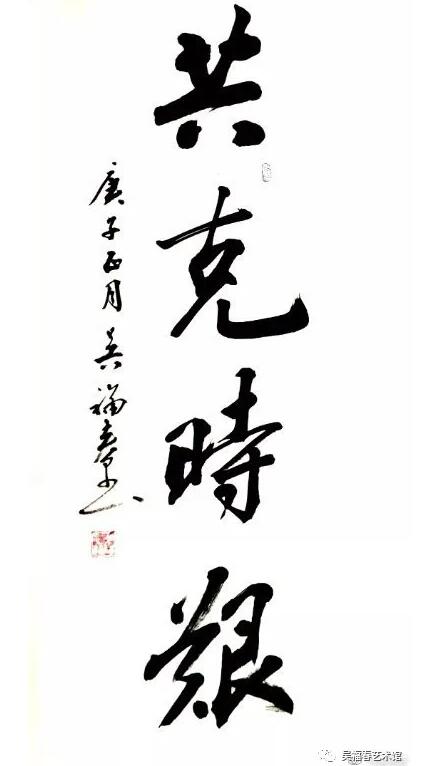 共克時艱
庚子正月吴福春
吴福春艺术馆